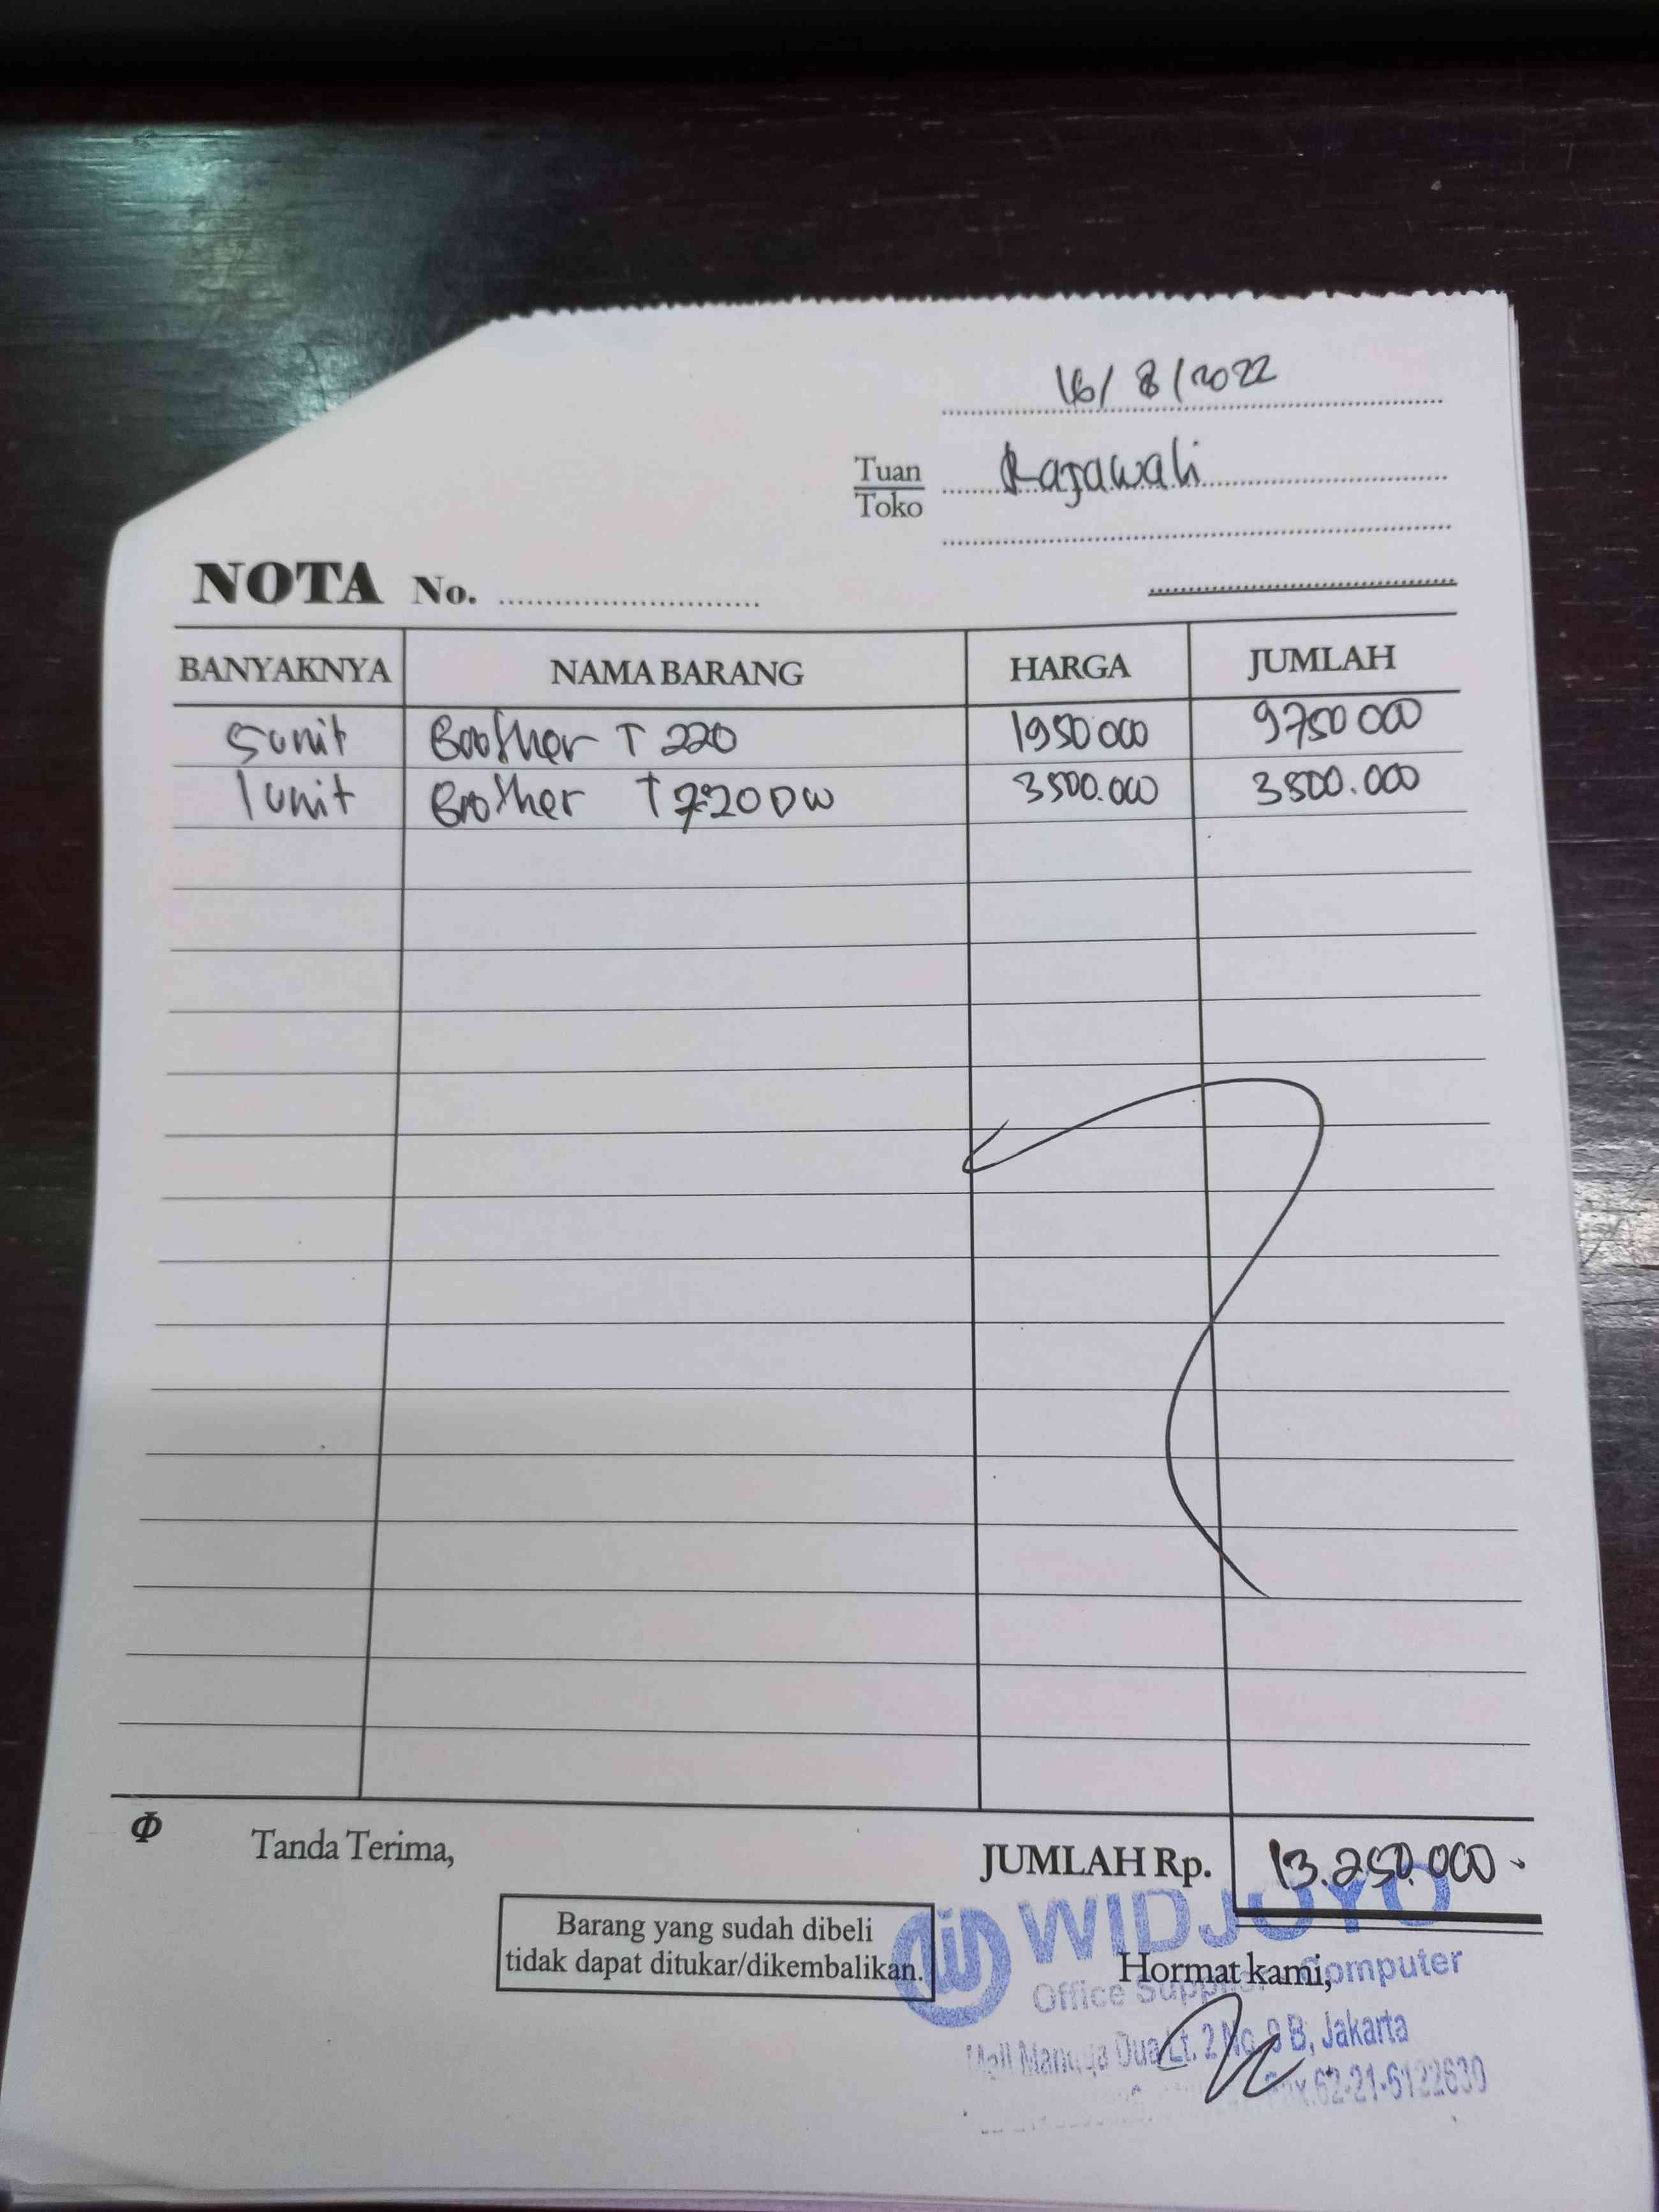 16/8/2022
Tuan
Toko
Rajawali
NOTA No.
BANYAKNYA NAMA BARANG HARGA JUMLAH
5 unit Brother T 220 1950 000 9750 000
1 unit Brother T 720 DW 3500.000 3500.000
Φ Tanda Terima, JUMLAH Rp. 13.250.000
Barang yang sudah dibeli
tidak dapat ditukar/dikembalikan.
WIDJOYO
Hormat kami,
Office Supplier Computer
Mall Mangga Dua Lt. 2 No. 9 B, Jakarta
Fax.62-21-6122630